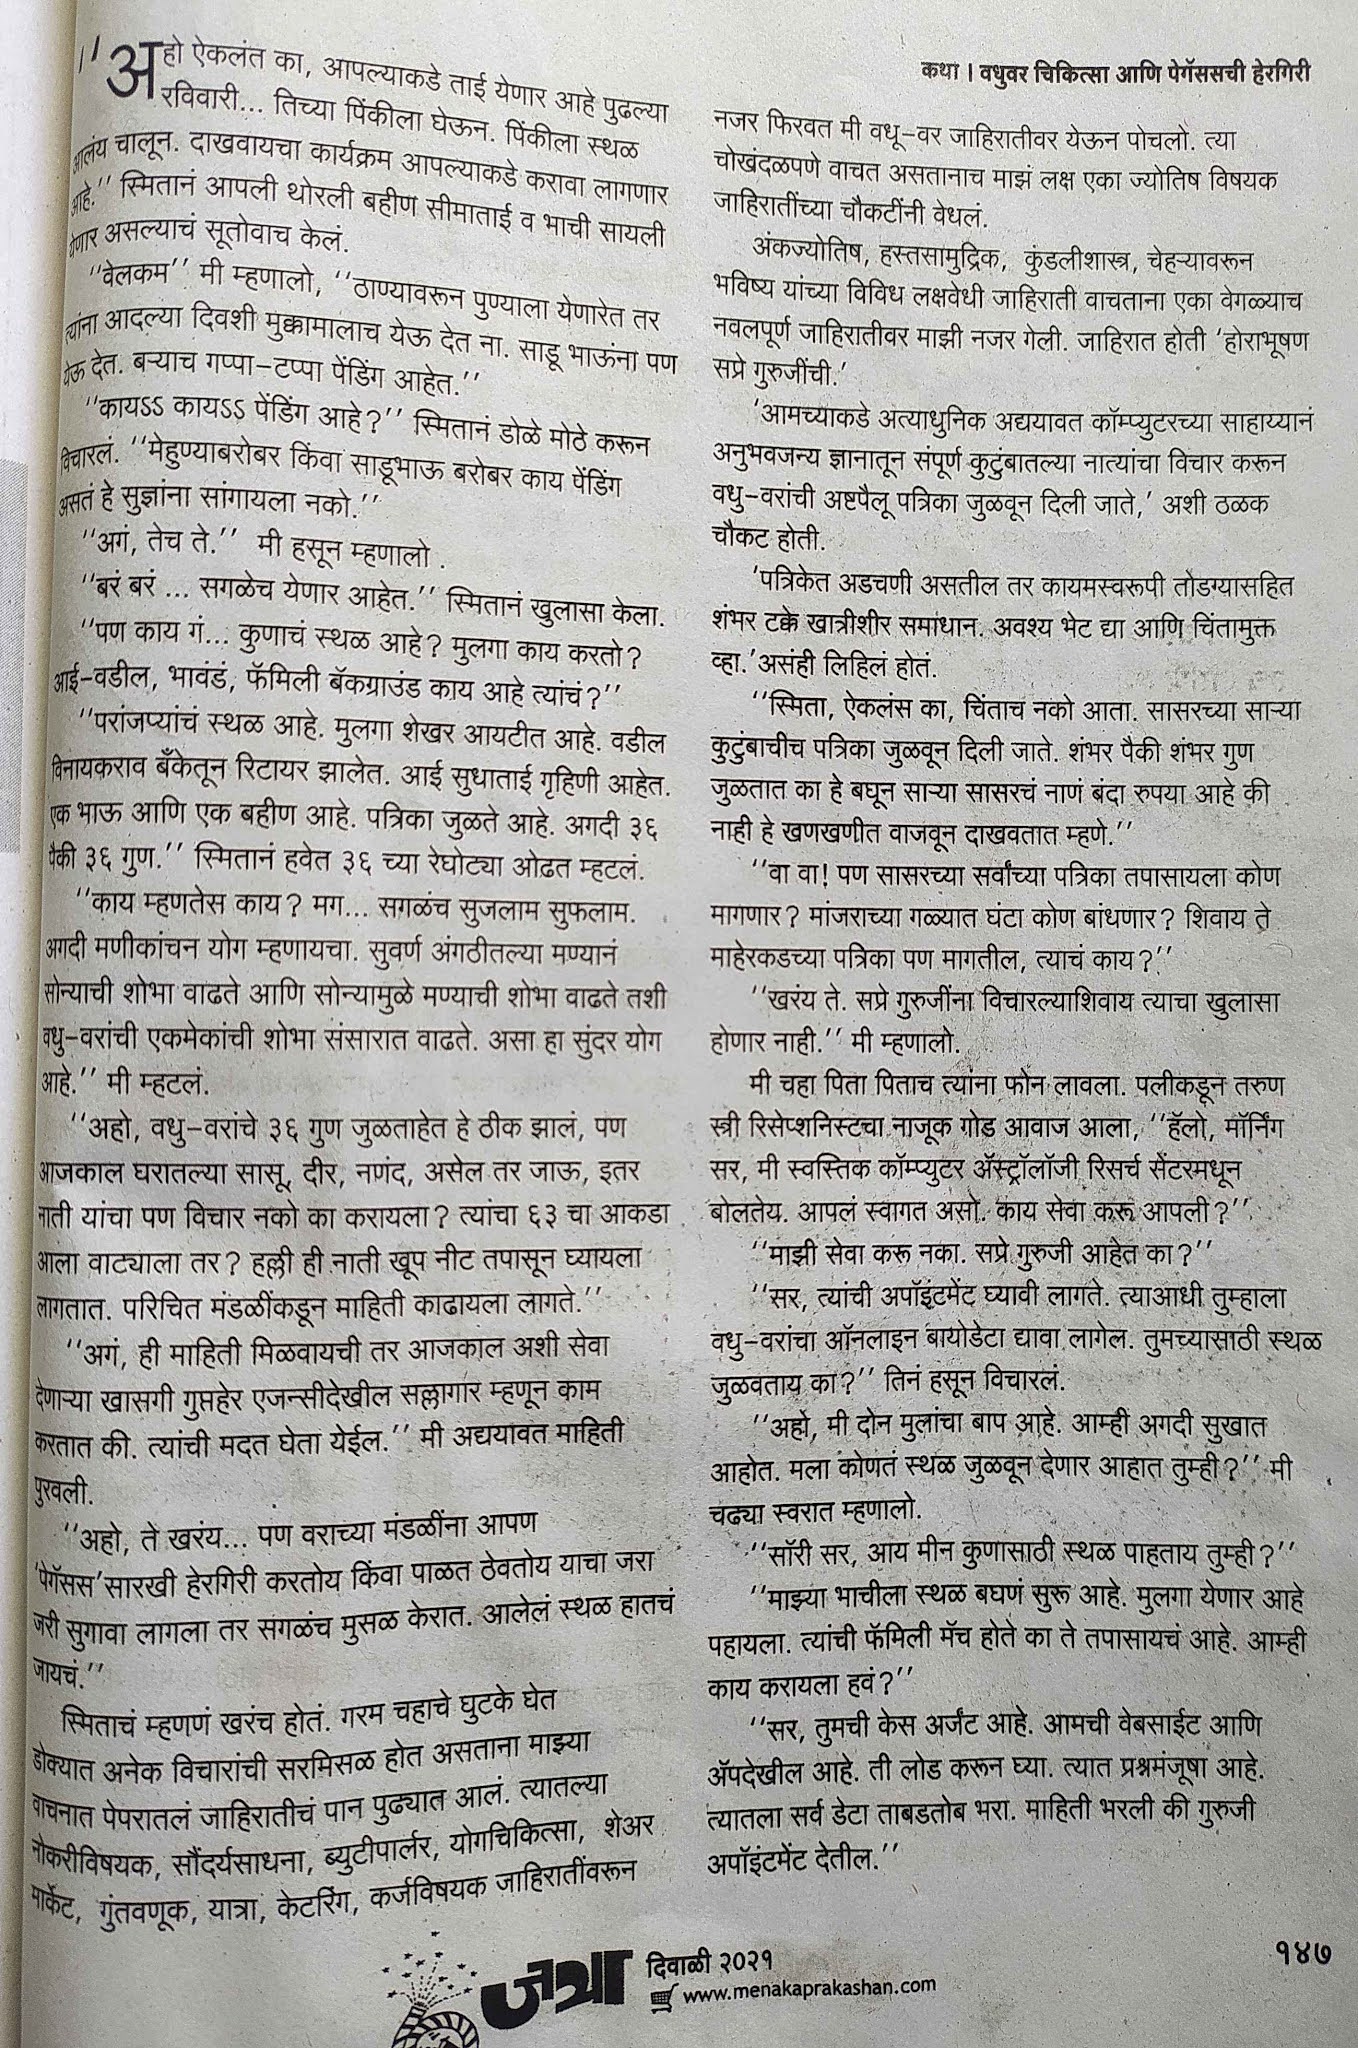 कथा । वधुवर चिकित्सा आणि पेगॅससची हेरगिरी
''अहो ऐकलंत का, आपल्याकडे ताई येणार आहे पुढल्या
रविवारी... तिच्या पिंकीला घेऊन. पिंकीला स्थळ
आलंय चालून. दाखवायचा कार्यक्रम आपल्याकडे करावा लागणार
आहे.'' स्मितानं आपली थोरली बहीण सीमाताई व भाची सायली
येणार असल्याचं सूतोवाच केलं.
''वेलकम'' मी म्हणालो, ''ठाण्यावरून पुण्याला येणारेत तर
त्यांना आदल्या दिवशी मुक्कामालाच येऊ देत ना. साडू भाऊंना पण
येऊ देत. बऱ्याच गप्पा-टप्पा पेंडिंग आहेत.''
''कायऽऽ कायऽऽ पेंडिंग आहे?'' स्मितानं डोळे मोठे करून
विचारलं. ''मेहुण्याबरोबर किंवा साडूभाऊ बरोबर काय पेंडिंग
असतं हे सुज्ञांना सांगायला नको.''
''अगं, तेच ते.'' मी हसून म्हणालो .
''बरं बरं ... सगळेच येणार आहेत.'' स्मितानं खुलासा केला.
''पण काय गं... कुणाचं स्थळ आहे? मुलगा काय करतो?
आई-वडील, भावंडं, फॅमिली बॅकग्राउंड काय आहे त्यांचं?''
''परांजप्यांचं स्थळ आहे. मुलगा शेखर आयटीत आहे. वडील
विनायकराव बँकेतून रिटायर झालेत. आई सुधाताई गृहिणी आहेत.
एक भाऊ आणि एक बहीण आहे. पत्रिका जुळते आहे. अगदी ३६
पैकी ३६ गुण.'' स्मितानं हवेत ३६ च्या रेघोट्या ओढत म्हटलं.
''काय म्हणतेस काय? मग... सगळंच सुजलाम सुफलाम.
अगदी मणीकांचन योग म्हणायचा. सुवर्ण अंगठीतल्या मण्यानं
सोन्याची शोभा वाढते आणि सोन्यामुळे मण्याची शोभा वाढते तशी
वधु-वरांची एकमेकांची शोभा संसारात वाढते. असा हा सुंदर योग
आहे.'' मी म्हटलं.
''अहो, वधु-वरांचे ३६ गुण जुळताहेत हे ठीक झालं, पण
आजकाल घरातल्या सासू, दीर, नणंद, असेल तर जाऊ, इतर
नाती यांचा पण विचार नको का करायला? त्यांचा ६३ चा आकडा
आला वाट्याला तर? हल्ली ही नाती खूप नीट तपासून घ्यायला
लागतात. परिचित मंडळींकडून माहिती काढायला लागते.''
''अगं, ही माहिती मिळवायची तर आजकाल अशी सेवा
देणाऱ्या खासगी गुप्तहेर एजन्सीदेखील सल्लागार म्हणून काम
करतात की. त्यांची मदत घेता येईल.'' मी अद्ययावत माहिती
पुरवली.
''अहो, ते खरंय... पण वराच्या मंडळींना आपण
'पेगॅसस'सारखी हेरगिरी करतोय किंवा पाळत ठेवतोय याचा जरा
जरी सुगावा लागला तर सगळंच मुसळ केरात. आलेलं स्थळ हातचं
जायचं.''
स्मिताचं म्हणणं खरंच होतं. गरम चहाचे घुटके घेत
डोक्यात अनेक विचारांची सरमिसळ होत असताना माझ्या
वाचनात पेपरातलं जाहिरातीचं पान पुढ्यात आलं. त्यातल्या
नोकरीविषयक, सौंदर्यसाधना, ब्युटीपार्लर, योगचिकित्सा, शेअर
मार्केट, गुंतवणूक, यात्रा, केटरिंग, कर्जविषयक जाहिरातींवरून
नजर फिरवत मी वधू-वर जाहिरातीवर येऊन पोचलो. त्या
चोखंदळपणे वाचत असतानाच माझं लक्ष एका ज्योतिष विषयक
जाहिरातींच्या चौकटींनी वेधलं.
अंकज्योतिष, हस्तसामुद्रिक, कुंडलीशास्त्र, चेहऱ्यावरून
भविष्य यांच्या विविध लक्षवेधी जाहिराती वाचताना एका वेगळ्याच
नवलपूर्ण जाहिरातीवर माझी नजर गेली. जाहिरात होती 'होराभूषण
सप्रे गुरुजींची.'
'आमच्याकडे अत्याधुनिक अद्ययावत कॉम्प्युटरच्या साहाय्यानं
अनुभवजन्य ज्ञानातून संपूर्ण कुटुंबातल्या नात्यांचा विचार करून
वधु-वरांची अष्टपैलू पत्रिका जुळवून दिली जाते,' अशी ठळक
चौकट होती.
'पत्रिकेत अडचणी असतील तर कायमस्वरूपी तोडग्यासहित
शंभर टक्के खात्रीशीर समाधान. अवश्य भेट द्या आणि चिंतामुक्त
व्हा.'असंही लिहिलं होतं.
''स्मिता, ऐकलंस का, चिंताच नको आता. सासरच्या साऱ्या
कुटुंबाचीच पत्रिका जुळवून दिली जाते. शंभर पैकी शंभर गुण
जुळतात का हे बघून साऱ्या सासरचं नाणं बंदा रुपया आहे की
नाही हे खणखणीत वाजवून दाखवतात म्हणे.''
''वा वा! पण सासरच्या सर्वांच्या पत्रिका तपासायला कोण
मागणार? मांजराच्या गळ्यात घंटा कोण बांधणार? शिवाय ते
माहेरकडच्या पत्रिका पण मागतील, त्याचं काय?''
''खरंय ते. सप्रे गुरुजींना विचारल्याशिवाय त्याचा खुलासा
होणार नाही.'' मी म्हणालो.
मी चहा पिता पिताच त्यांना फोन लावला. पलीकडून तरुण
स्त्री रिसेप्शनिस्टचा नाजूक गोड आवाज आला, ''हॅलो, मॉर्निंग
सर, मी स्वस्तिक कॉम्प्युटर ॲस्ट्रॉलॉजी रिसर्च सेंटरमधून
बोलतेय. आपलं स्वागत असो. काय सेवा करू आपली?''
''माझी सेवा करू नका. सप्रे गुरुजी आहेत का?''
''सर, त्यांची अपॉइंटमेंट घ्यावी लागते. त्याआधी तुम्हाला
वधु-वरांचा ऑनलाइन बायोडेटा द्यावा लागेल. तुमच्यासाठी स्थळ
जुळवताय का?'' तिनं हसून विचारलं.
''अहो, मी दोन मुलांचा बाप आहे. आम्ही अगदी सुखात
आहोत. मला कोणतं स्थळ जुळवून देणार आहात तुम्ही?'' मी
चढ्या स्वरात म्हणालो.
''सॉरी सर, आय मीन कुणासाठी स्थळ पाहताय तुम्ही?''
''माझ्या भाचीला स्थळ बघणं सुरू आहे. मुलगा येणार आहे
पहायला. त्यांची फॅमिली मॅच होते का ते तपासायचं आहे. आम्ही
काय करायला हवं?''
''सर, तुमची केस अर्जंट आहे. आमची वेबसाईट आणि
ॲपदेखील आहे. ती लोड करून घ्या. त्यात प्रश्नमंजूषा आहे.
त्यातला सर्व डेटा ताबडतोब भरा. माहिती भरली की गुरुजी
अपॉइंटमेंट देतील.''
जत्रा दिवाळी २०२१
www.menakaprakashan.com
१४७